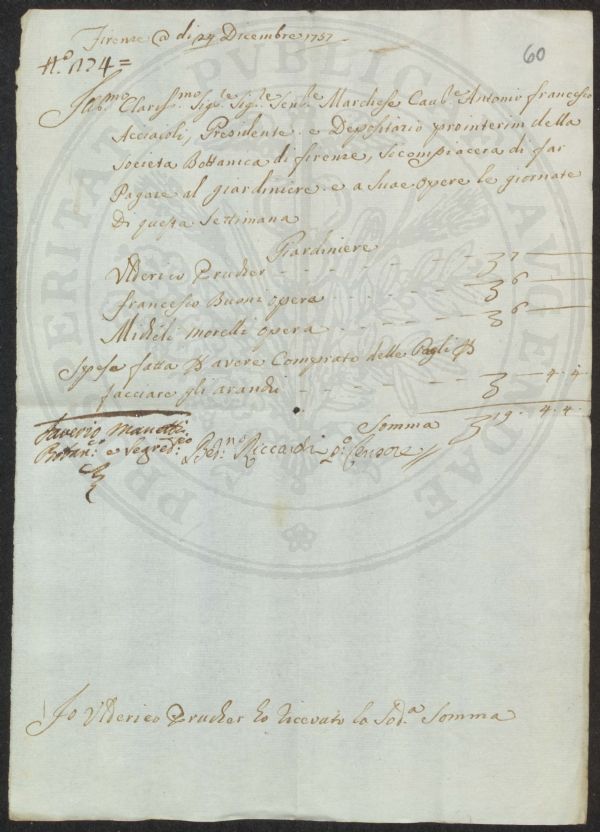 Firenze @ di 24 Dicembre 1757
60
N.o 1134 =
Ill.mo Clariss.mo Sig.re Sig.re Sen.re Marchese Cav.re Antonio francesco
Acciaioli, Presidente e Depositario prointerim della
Societa Bottanica di firenze, Si compiacera di far
Pagare al giardiniere e a Suae opere le giornate
Di questa Settimana
Giardiniere
Vlderico Prucher - - - - - - 7 —
francesco Buoni opera - - - - - 6 —
Micheli morelli opera - - - - - 6 —
Spese fatta P avere Comprato delle Pagli P
facciare gli aranci - - - - - - 4. 4
Somma 19. 4. 4.
Saverio Manetti
Botan.co e Segred.rio
Riccardi p.o Censore
Io Vlderico Prucher ho ricevuto la Sod.a Somma
PROSPERITATI PUBLICAE AUGENDAE